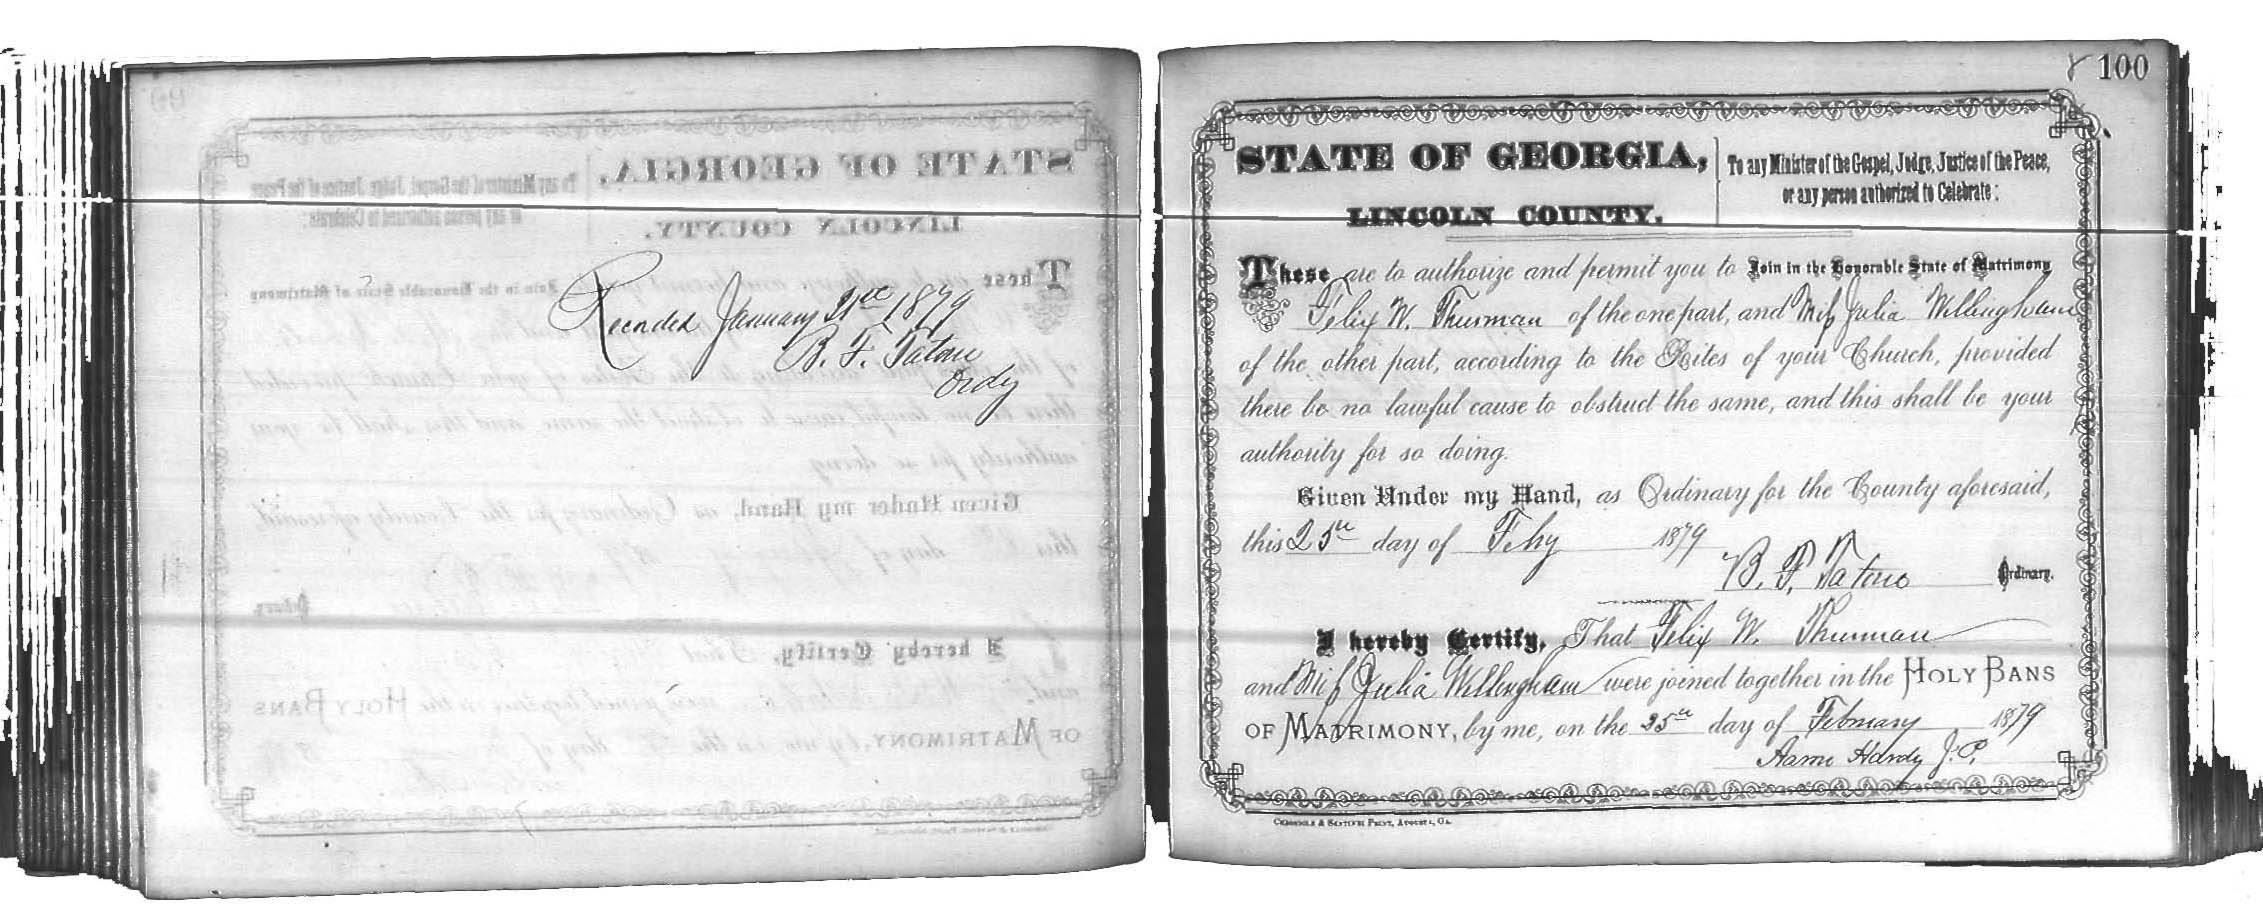 Recorded January 21st 1879
B. F. Tatom
Ordy
100
STATE OF GEORGIA,
LINCOLN COUNTY.
To any Minister of the Gospel, Judge, Justice of the Peace,
or any person authorized to Celebrate:
These are to authorize and permit you to Join in the Honorable State of Matrimony
Felix W. Thurman of the one part, and Miss Julia Willingham
of the other part, according to the Rites of your Church, provided
there be no lawful cause to obstruct the same, and this shall be your
authority for so doing.
Given Under my Hand, as Ordinary for the County aforesaid,
this 25th day of Feby 1879
B. F. Tatom Ordinary.
I hereby Certify, That Felix W. Thurman
and Miss Julia Willingham were joined together in the HOLY BANS
OF MATRIMONY, by me, on the 25th day of February 1879
Aaron Hardy J.P.
CHRONICLE & SENTINEL PRINT, AUGUSTA, GA.